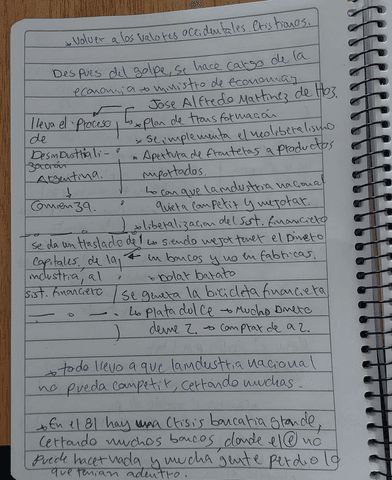 → Volver a los valores occidentales. Cristianos.
Despues del golpe, se hace cargo de la
economia → ministro de economia,
Jose Alfredo Martinez de Hoz.
lleva el Proceso
→ Plan de transformación
de
→ se implementa el neoliberalismo
Desindustriali-
zación
• Apertura de fronteras a productos
Argentina.
importados.
↳ con que la industria nacional
Comienza.
quera competir y mejorar.
→ liberalización del sist. financiero
se da un traslado de
↳ siendo mejor tener el Dinero
capitales, de la
en bancos y no en fabricas.
industria, al
→ dolar barato
sist. financiero
se genera la bicicleta financiera
↳ Plata dulce → Mucho Dinero
deme 2. → comprar de a 2.
→ todo llevo a que la industria nacional
no pueda competir, cerrando muchas.
→ En el 81 hay una crisis bancaria grande,
cerrando muchos bancos, donde el (e) no
puede hacer nada y mucha gente perdio lo
que tenian adentro.